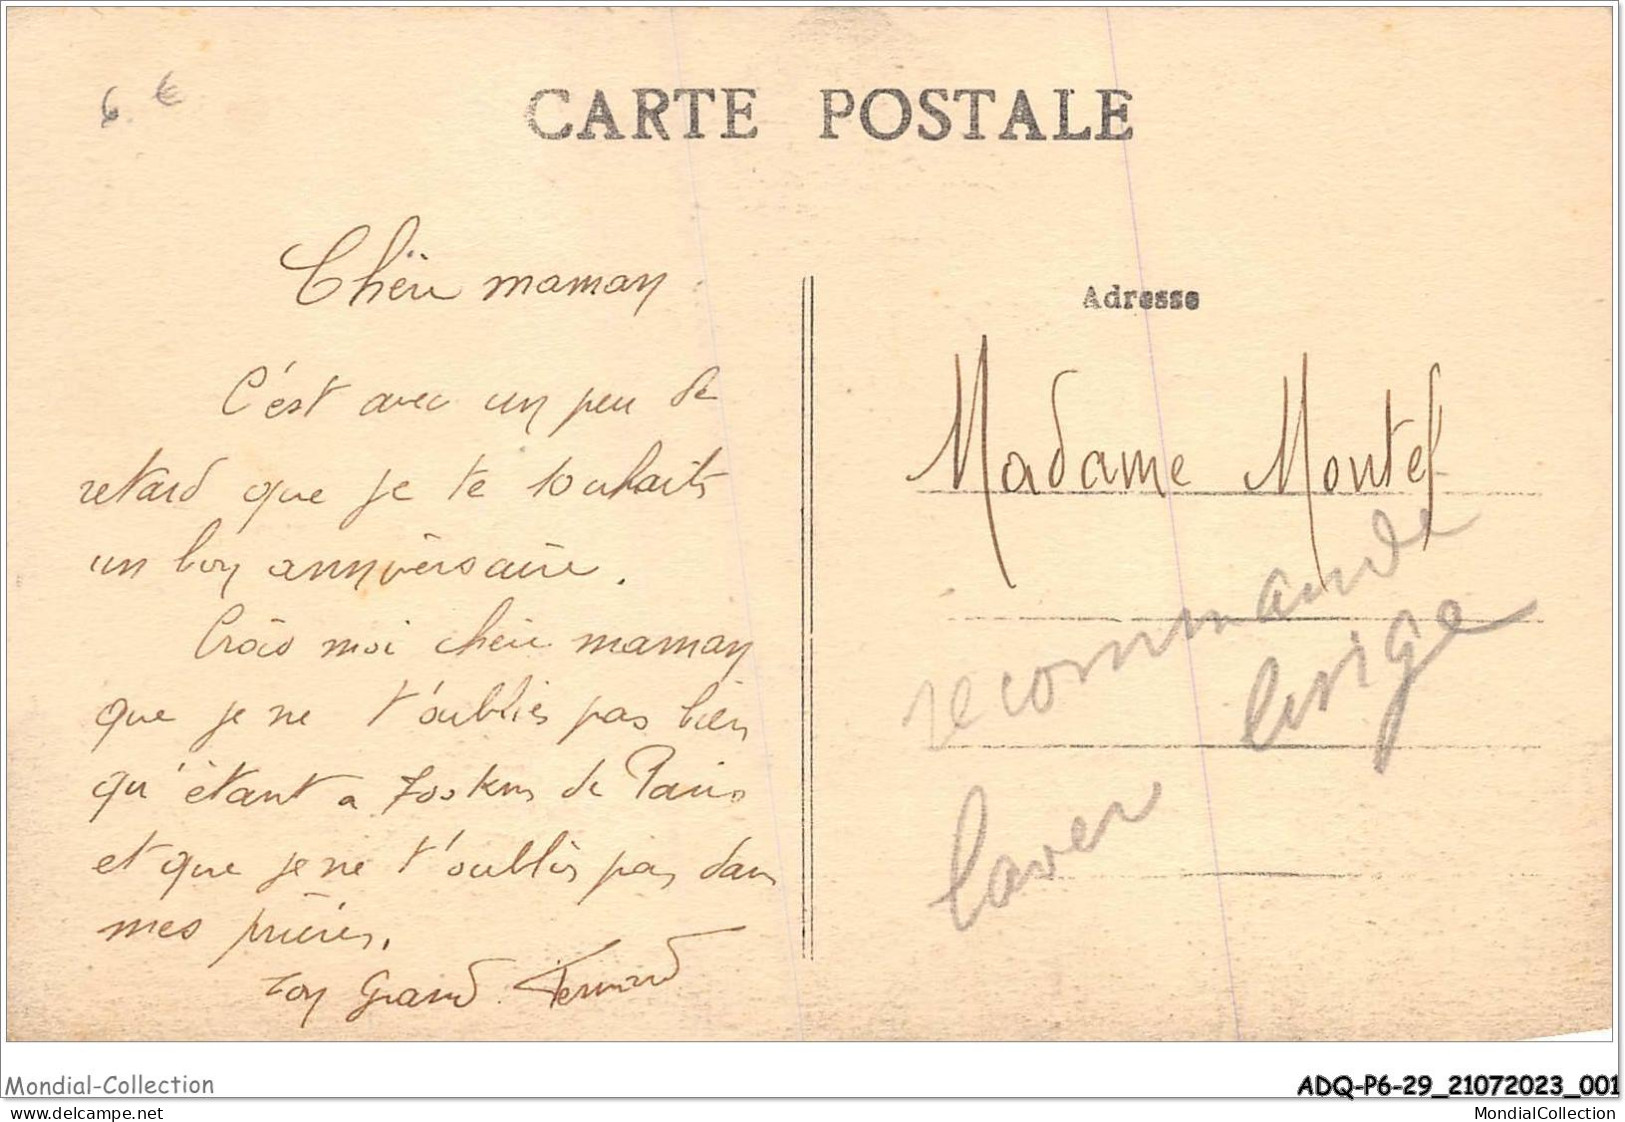 6 €
CARTE POSTALE
Chère maman
C'est avec un peu de
retard que je te souhaite
un bon anniversaire.
Crois moi chère maman
que je ne t'oublies pas bien
qu'étant a 700 kms de Paris
et que je ne t'oublis pas dans
mes prières.
ton Grand Fernand
Adresse
Madame Montel
recommande
linge
laver
Mondial-Collection
ADQ-P6-29_21072023_001
www.delcampe.net
MondialCollection